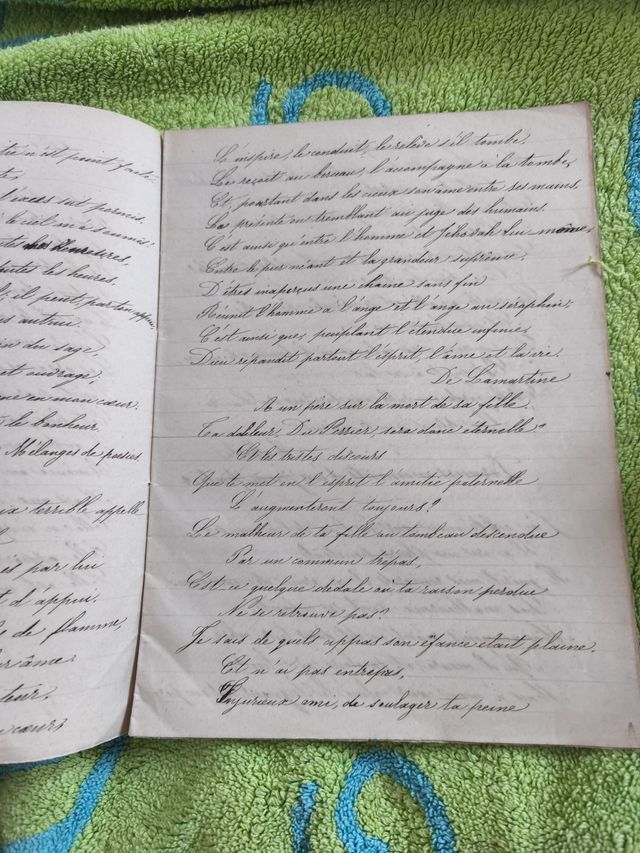 tre n'est point fait
te,
l'excès sut permis.
le ciel m'a soumis!
tes les heures,
toutes les heures.
il peut, par ton appui,
autrui.
du sage,
et outrage,
me en mon cœur.
le bonheur
Mélanges de poésies
ix terrible appelle
is par lui
t d'appui.
de flamme,
ur âme.
teur.
cœurs
L'inspire, le conduit, le relève s'il tombe,
Le reçoit au berceau, l'accompagne à la tombe,
Et, portant dans les cieux son âme entre ses mains,
La présente en tremblant au juge des humains.
C'est ainsi qu'entre l'homme et Jéhovah lui même,
Entre le pur néant et la grandeur suprême,
D'êtres inaperçus une chaine sans fin
Réunit l'homme à l'ange et l'ange au séraphin;
C'est ainsi que, peuplant l'étendue infinie,
Dieu répandit partout l'esprit, l'âme et la vie.
De Lamartine
A un père sur la mort de sa fille.
Ta douleur, Du Perrier, sera donc éternelle?
Et les tristes discours
Que te met en l'esprit l'amitié paternelle
L'augmenteront toujours?
Le malheur de ta fille au tombeau descendue
Par un commun trépas,
Est-ce quelque dédale où ta raison perdue
Ne se retrouve pas?
Je sais de quels appas son enfance était pleine,
Et n'ai pas entrepris,
Injurieux ami, de soulager ta peine